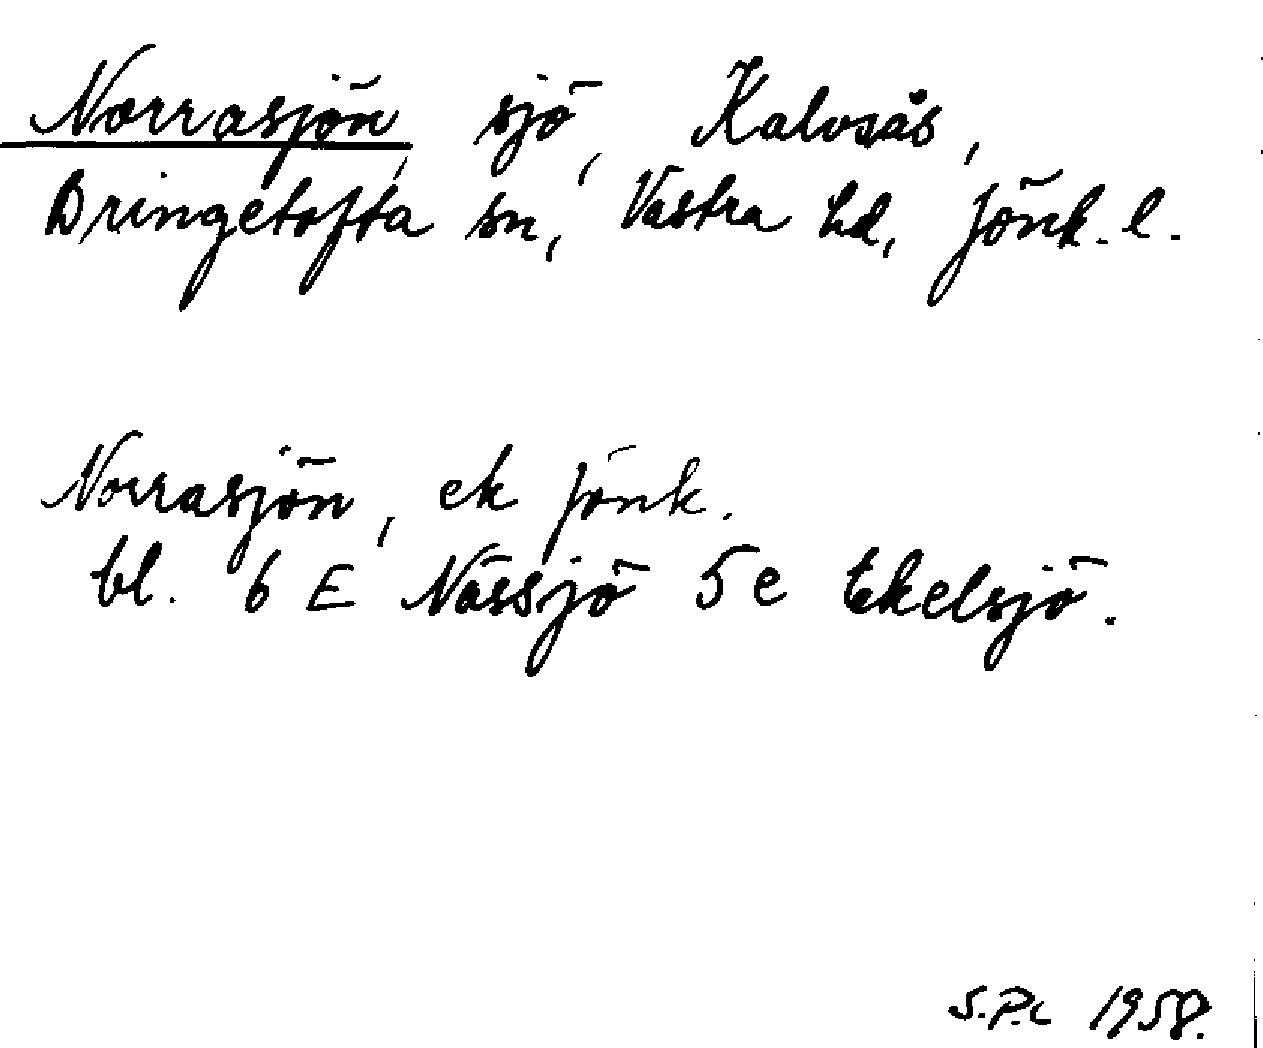 Norrasjön, sjö, Kalvsås,
Bringetofta sn, Västra hd, Jönk. l.
Norrasjön, ek Jönk.
bl. 6 E Nässjö 5 e Ekelsjö.
S.P.L 1958.